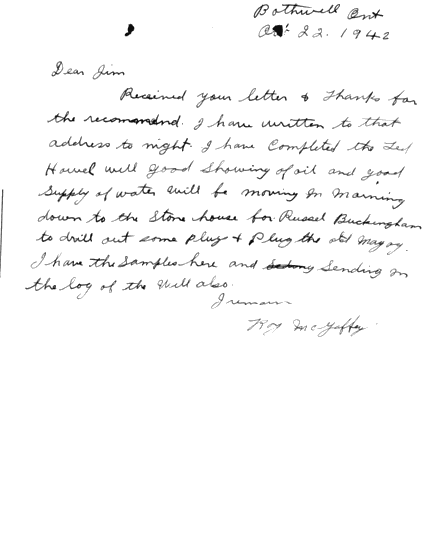 Bothwell Ont
Oct 22. 1942
Dear Jim
Received your letter & Thanks for
the recommend. I have written to that
address to night. I have Completed the Ted
Howel well good Showing of oil and good
Supply of water Will be moving in Morning
down to the Stone house for Russel Buckingham
to drill out some plugs & Plug the old
I have the Samples here and Sending in
the log of the Well also.
I remain
Roy McGaffey